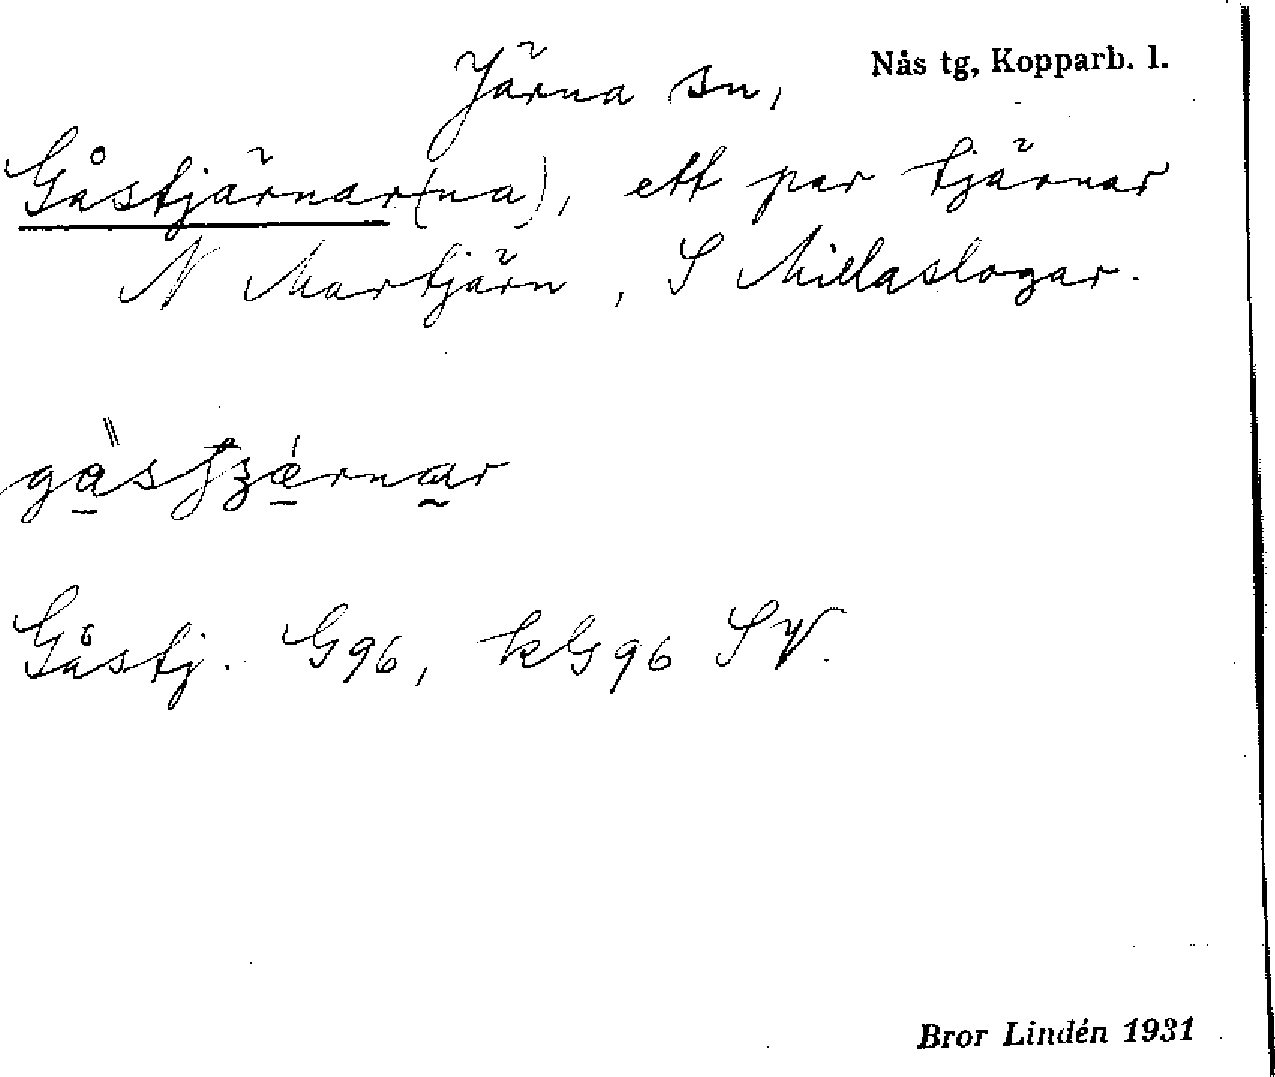 Järna sn, Nås tg, Kopparb. l.
Gåstjärnar(na), ett par tjärnar
N Martjärn, S Millaslogar.
Gåstj. G96, kG96 SV.
Bror Lindén 1931